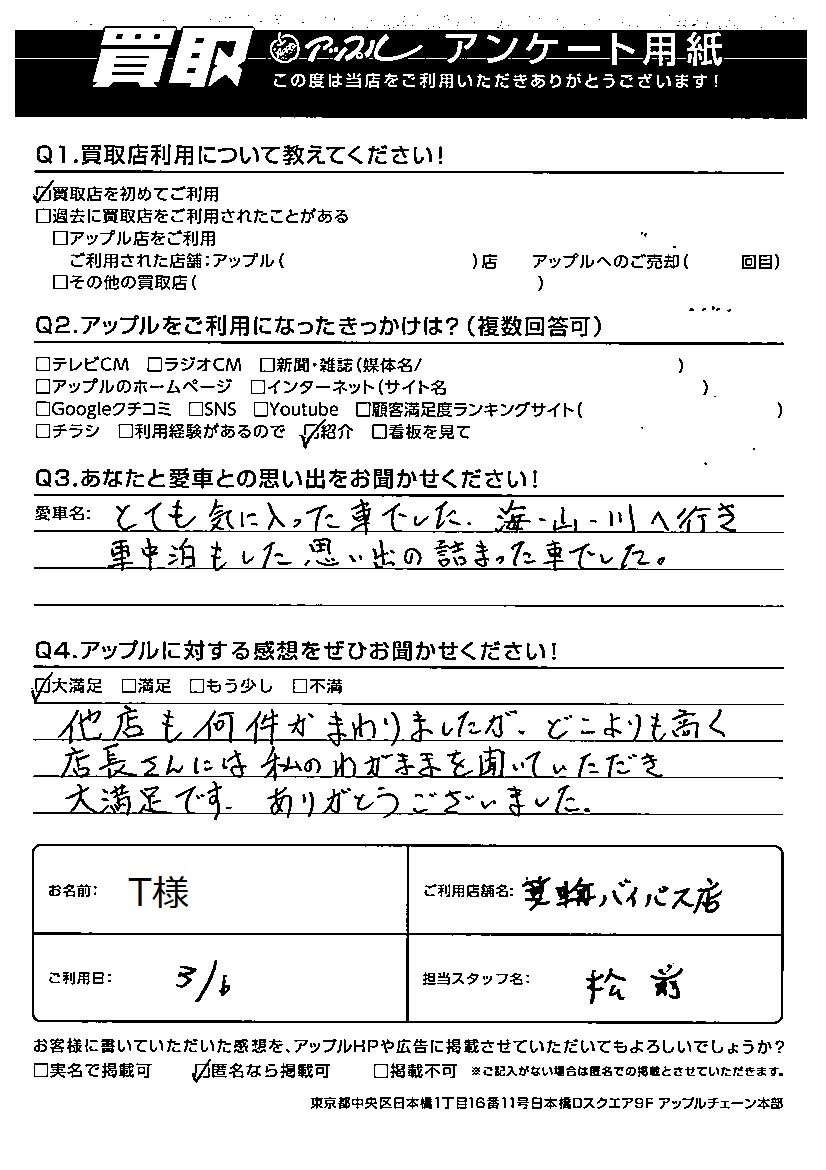 買取 アップル アンケート用紙
この度は当店をご利用いただきありがとうございます!
Q1.買取店利用について教えてください!
☑買取店を初めてご利用
□過去に買取店をご利用されたことがある
□アップル店をご利用
ご利用された店舗:アップル( )店 アップルへのご売却( 回目)
□その他の買取店( )
Q2.アップルをご利用になったきっかけは?(複数回答可)
□テレビCM □ラジオCM □新聞・雑誌(媒体名/ )
□アップルのホームページ □インターネット(サイト名 )
□Googleクチコミ □SNS □Youtube □顧客満足度ランキングサイト( )
□チラシ □利用経験があるので ☑紹介 □看板を見て
Q3.あなたと愛車との思い出をお聞かせください!
愛車名: とても気に入った車でした。海・山・川へ行き
車中泊もした思い出の詰まった車でした。
Q4.アップルに対する感想をぜひお聞かせください!
☑大満足 □満足 □もう少し □不満
他店も何件かまわりましたが、どこよりも高く
店長さんには私のわがままを聞いていただき
大満足です。ありがとうございました。
お名前: T様 ご利用店舗名: 箕輪バイパス店
ご利用日: 3/6 担当スタッフ名: 松前
お客様に書いていただいた感想を、アップルHPや広告に掲載させていただいてもよろしいでしょうか?
□実名で掲載可 ☑匿名なら掲載可 □掲載不可 ※ご記入がない場合は匿名での掲載とさせていただきます。
東京都中央区日本橋1丁目16番11号日本橋Dスクエア9F アップルチェーン本部